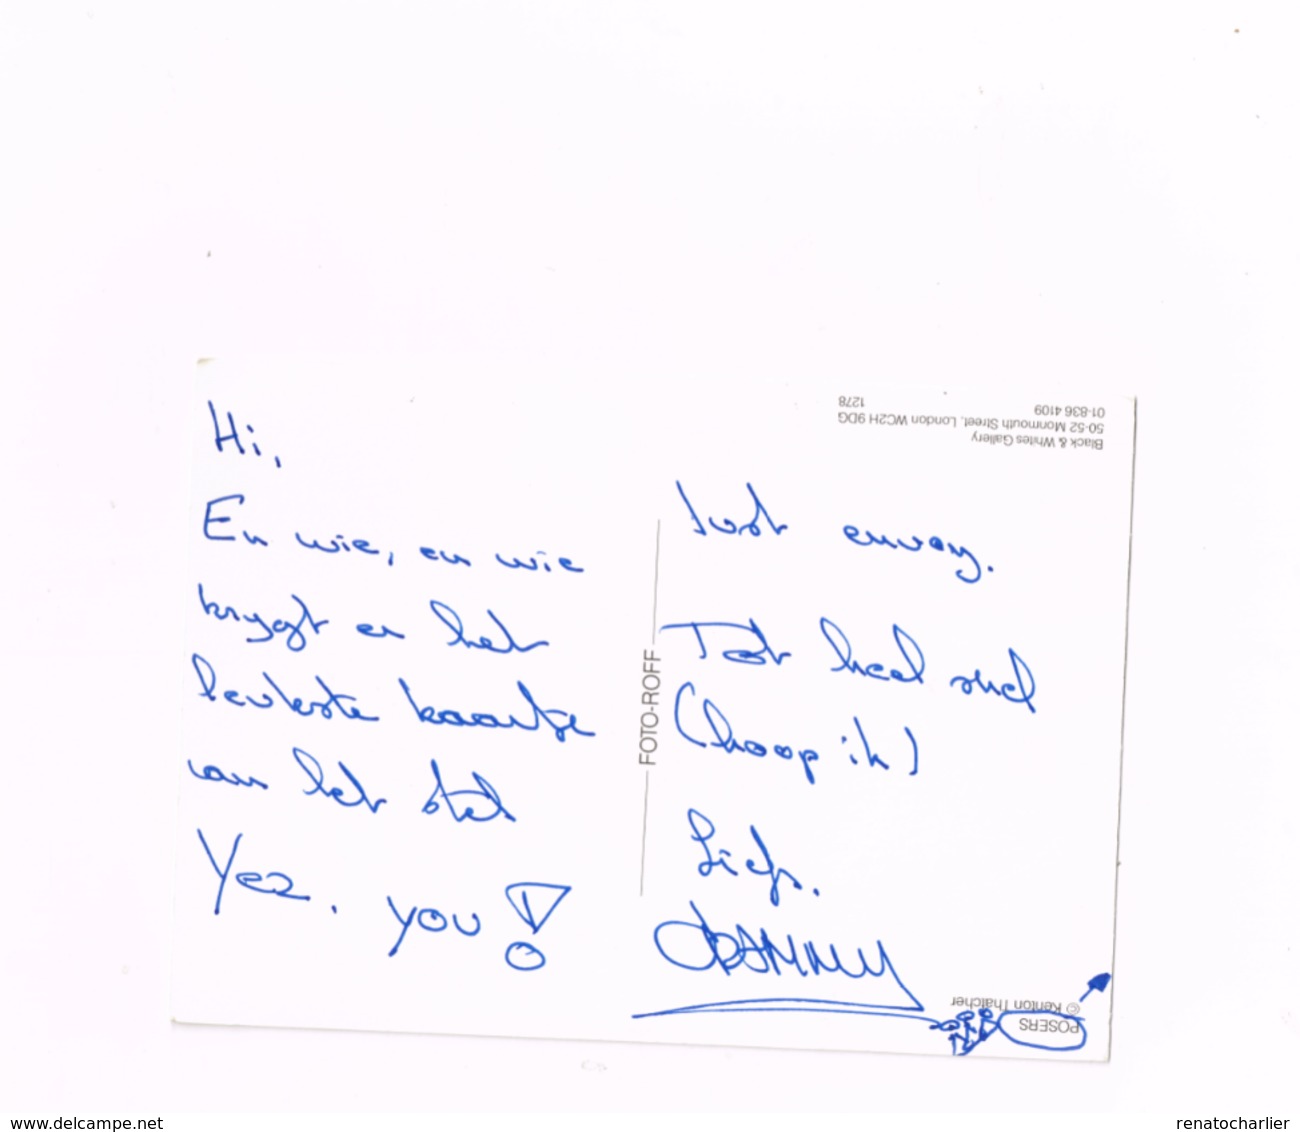 Hi,
En wie, en wie
krygt er het
leukste kaartje
van het stel
Yez. you !
Just enway.
Tot heel snel
(hoop ik)
Liefs.
DANNY
FOTO-ROFF
Black & Whites Gallery
50-52 Monmouth Street, London WC2H 9DG
01-836 4109
1278
POSERS
© Kenton Thatcher
www.delcampe.net
renatocharlier